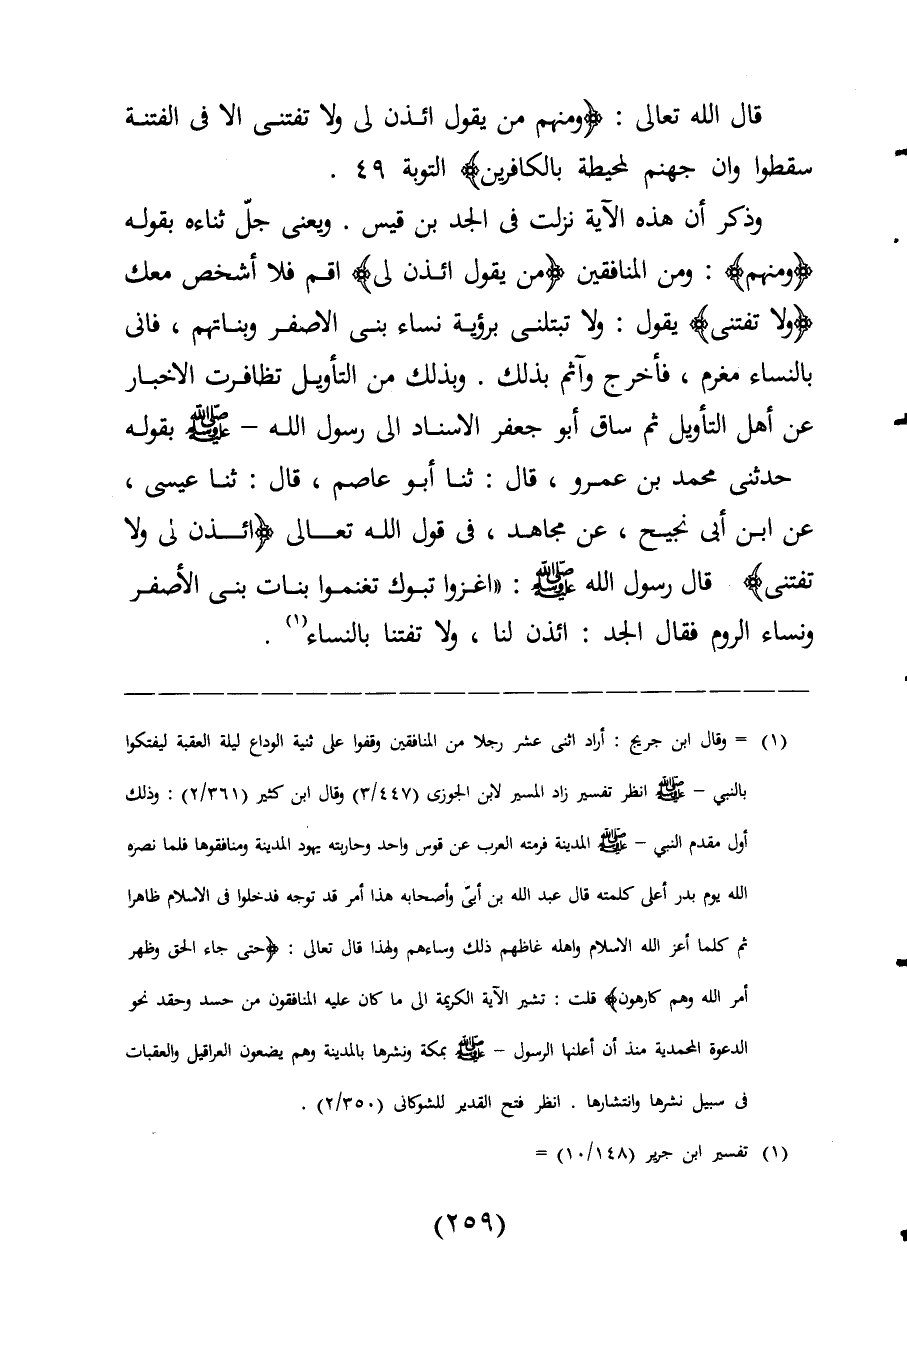 قال الله تعالى : ﴿ومنهم من يقول ائـذن لى ولا تفتنـى الا فى الفتنـة
سقطوا وان جهنم لمحيطة بالكافرين﴾ التوبة ٤٩ .
وذكر أن هذه الآية نزلت فى الجد بن قيس . ويعنى جلّ ثناءه بقولـه
﴿ومنهم﴾ : ومن المنافقين ﴿من يقول ائـذن لى﴾ اقـم فلا أشخص معك
﴿ولا تفتنى﴾ يقول : ولا تبتلنـى برؤيـة نساء بنـى الاصفـر وبنـاتهم ، فانى
بالنساء مغرم ، فأخرج وآثم بذلك . وبذلك من التأويـل تظافـرت الاخبـار
عن أهل التأويل ثم ساق أبو جعفر الاسنـاد الى رسول اللـه – ﷺ بقولـه
حدثنى محمد بن عمـرو ، قال : ثنـا أبـو عاصم ، قال : ثنـا عيسى ،
عن ابـن أبى نجيـح ، عن مجاهـد ، فى قول اللـه تعـالى ﴿ائـذن لى ولا
تفتنى﴾ قال رسول الله ﷺ : «اغـزوا تبـوك تغنمـوا بنـات بنـى الأصفـر
ونساء الروم فقال الجد : ائذن لنا ، ولا تفتنا بالنساء(١) .
(١) = وقال ابن جريج : أراد اثنى عشر رجلا من المنافقين وقفوا على ثنية الوداع ليلة العقبة ليفتكوا
بالنبي – ﷺ انظر تفسير زاد المسير لابن الجوزى (٣/٤٤٧) وقال ابن كثير (٢/٣٦١) : وذلك
أول مقدم النبي – ﷺ المدينة فرمته العرب عن قوس واحد وحاربته يهود المدينة ومنافقوها فلما نصره
الله يوم بدر أعلى كلمته قال عبد الله بن أبىّ وأصحابه هذا أمر قد توجه فدخلوا فى الاسلام ظاهرا
ثم كلما أعز الله الاسلام واهله غاظهم ذلك وساءهم ولهذا قال تعالى : ﴿حتى جاء الحق وظهر
أمر الله وهم كارهون﴾ قلت : تشير الآية الكريمة الى ما كان عليه المنافقون من حسد وحقد نحو
الدعوة المحمدية منذ أن أعلنها الرسول – ﷺ بمكة ونشرها بالمدينة وهم يضعون العراقيل والعقبات
فى سبيل نشرها وانتشارها . انظر فتح القدير للشوكانى (٢/٣٥٠) .
(١) تفسير ابن جرير (١٠/١٤٨) =
(٢٥٩)